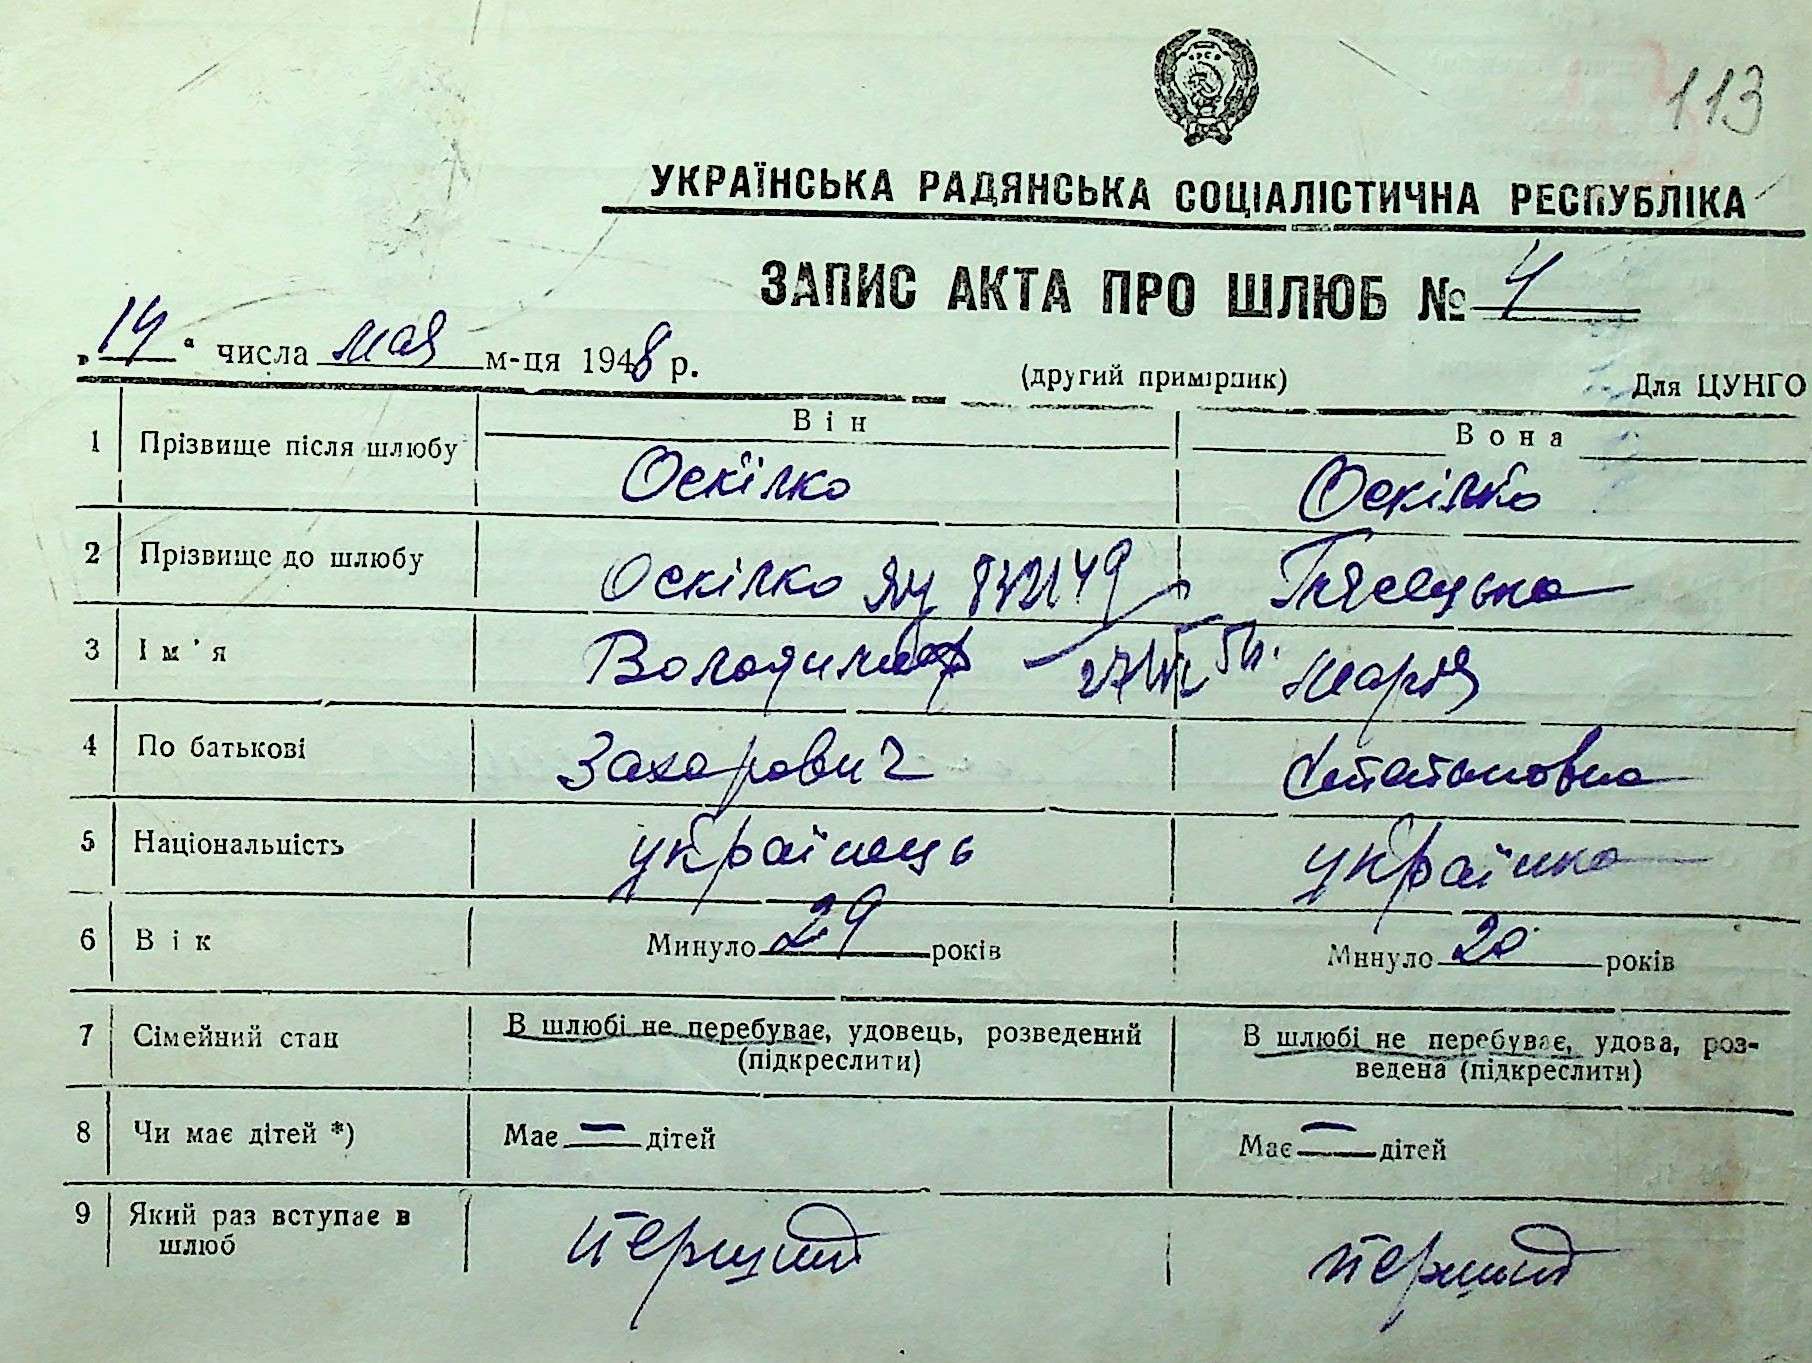 113
УКРАЇНСЬКА РАДЯНСЬКА СОЦІАЛІСТИЧНА РЕСПУБЛІКА
ЗАПИС АКТА ПРО ШЛЮБ № 4
„14“ числа мая м-ця 1948 р.
(другий примірник) Для ЦУНГО
Він Вона
1 Прізвище після шлюбу Оскілко Оскілко
2 Прізвище до шлюбу Оскілко
3 Ім'я Володимир Марія
4 По батькові Захарович
5 Національність українець українка
6 Вік Минуло 29 років Минуло 20 років
7 Сімейний стан В шлюбі не перебуває, удовець, розведений В шлюбі не перебуває, удова, роз-
(підкреслити) ведена (підкреслити)
8 Чи має дітей *) Має — дітей Має — дітей
9 Який раз вступає в
шлюб перший перший